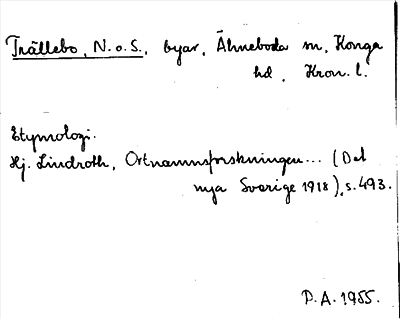 Trällebo, N. o. S., byar, Älmeboda sn, Konga
hd, Kron. l.
Etymologi.
Hj. Lindroth, Ortnamnsforskningen... (Det
nya Sverige 1918), s. 493.
P. A. 1955.